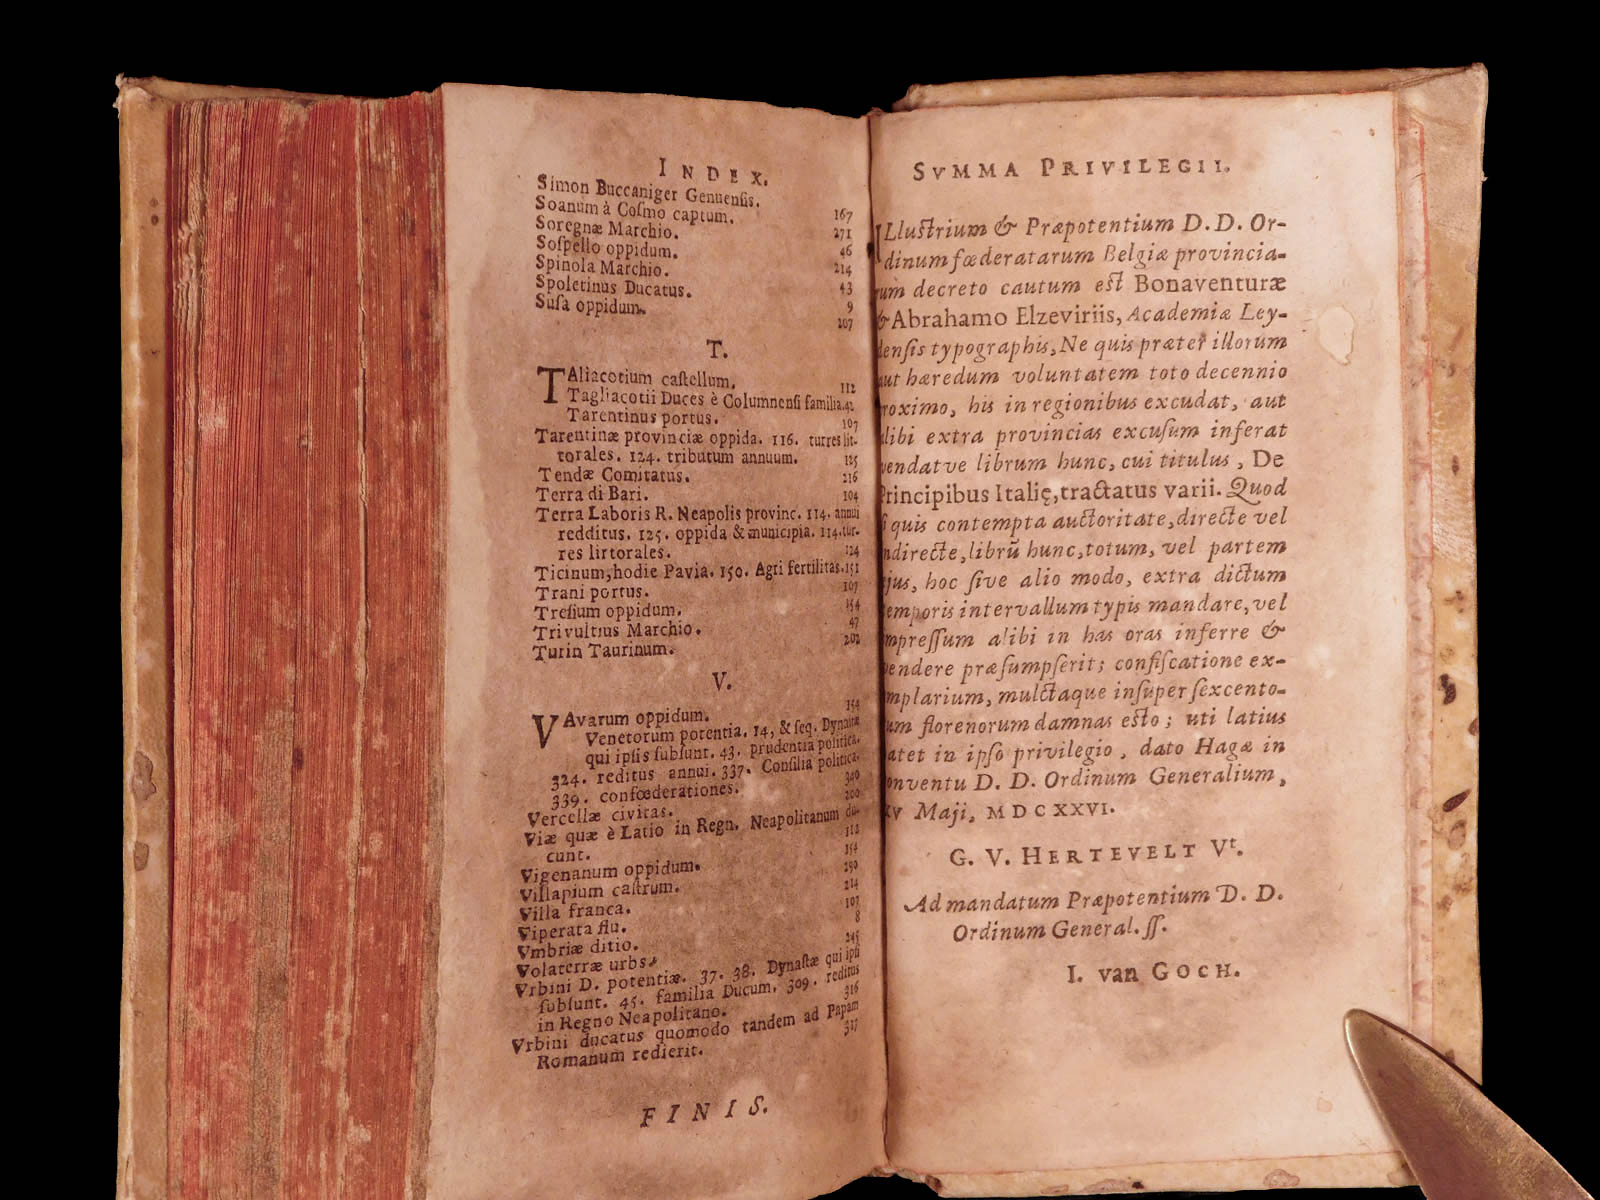 INDEX.
Simon Buccaniger Genuensis. 167
Soanum à Cosmo captum. 271
Soregnæ Marchio. 46
Sospello oppidum. 214
Spinola Marchio. 43
Spoletinus Ducatus. 9
Susa oppidum. 207
T.
TAliacotium castellum. 112
Tagliacotii Duces è Columnensi familia. 42
Tarentinus portus. 107
Tarentinæ provinciæ oppida. 116. turres lit-
torales. 124. tributum annuum. 125
Tendæ Comitatus. 216
Terra di Bari. 104
Terra Laboris R. Neapolis provinc. 114. annui
redditus. 125. oppida & municipia. 114. tur-
res lirtorales. 124
Ticinum, hodie Pavia. 150. Agri fertilitas. 151
Trani portus. 107
Tresium oppidum. 154
Trivultius Marchio. 47
Turin Taurinum. 202
V.
VAvarum oppidum. 154
Venetorum potentia. 14, & seq. Dynastæ
qui ipsis subsunt. 43. prudentia politica.
324. reditus annui. 337. Consilia politica.
339. confœderationes. 340
Vercellæ civitas. 200
Viæ quæ è Latio in Regn. Neapolitanum du-
cunt. 112
Vigenanum oppidum. 154
Villapium castrum. 290
Villa franca. 214
Viperata flu. 101
Vmbriæ ditio. 8
Volaterræ urbs. 245
Vrbini D. potentiæ. 37. 38. Dynastæ qui ipsi
subsunt. 45. familia Ducum. 309. reditus
in Regno Neapolitano. 316
Vrbini ducatus quomodo tandem ad Papam
Romanum redierit. 317
FINIS.
SVMMA PRIVILEGII.
ILlustrium & Præpotentium D. D. Or-
dinum fœderatarum Belgiæ provincia-
rum decreto cautum est Bonaventuræ
& Abrahamo Elzeviriis, Academiæ Ley-
densis typographis, Ne quis præter illorum
aut hæredum voluntatem toto decennio
proximo, his in regionibus excudat, aut
alibi extra provincias excusum inferat
vendatve librum hunc, cui titulus, De
Principibus Italię, tractatus varii. Quod
si quis contempta auctoritate, directe vel
indirecte, librū hunc, totum, vel partem
ejus, hoc sive alio modo, extra dictum
temporis intervallum typis mandare, vel
impressum alibi in has oras inferre &
vendere præsumpserit; confiscatione ex-
emplarium, mulctaque insuper sexcento-
rum florenorum damnas esto; uti latius
patet in ipso privilegio, dato Hagæ in
conventu D. D. Ordinum Generalium,
xv Maji, MDCXXVI.
G. V. HERTEVELT Vt.
Ad mandatum Præpotentium D. D.
Ordinum General. ss.
I. van GOCH.